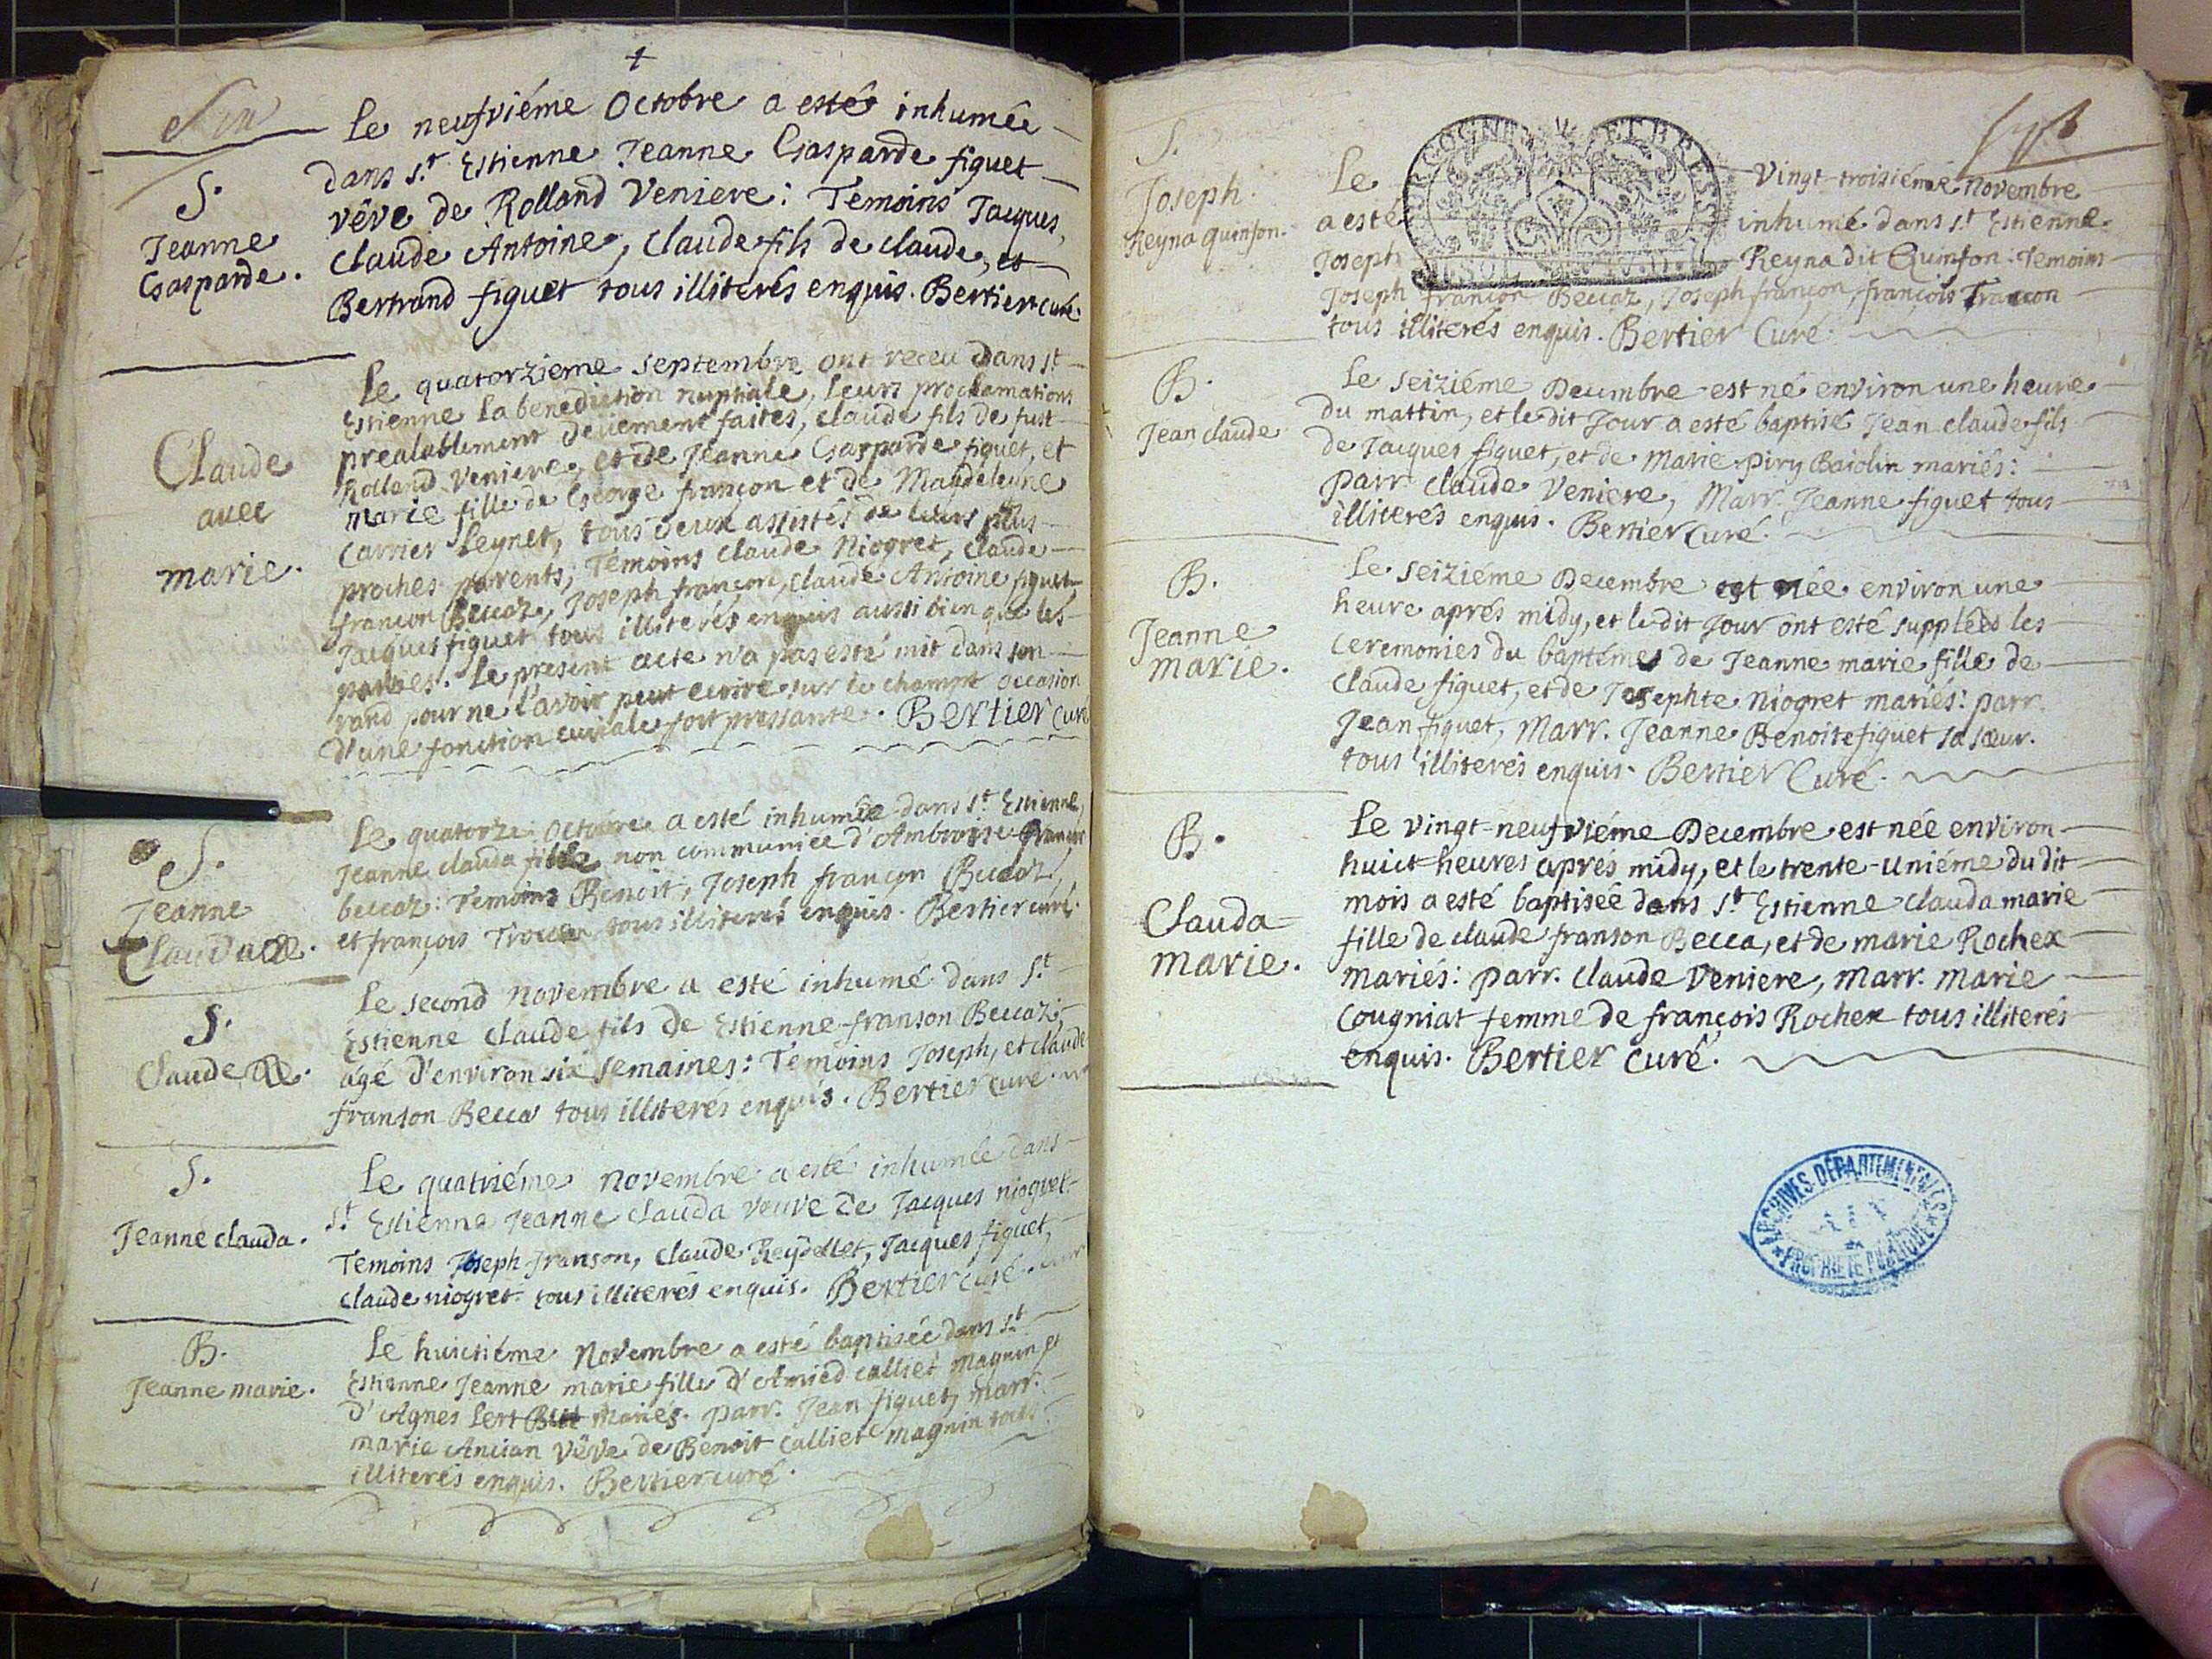 Le neufviéme Octobre a esté inhumée
dans s.t Estienne Jeanne Gasparde figuet
vêve de Rolland Veniere: Temoins Jacques,
claude Antoine, claude fils de claude, et
Bertrand figuet tous illiterés enquis. Bertier curé.
S.
Jeanne
Gasparde.
Le quatorzieme septembre ont receu dans s.t
Estienne la benediction nuptiale, leurs proclamations
prealablement deüement faites, claude fils de fust
Rolland Veniere, et de Jeanne Gasparde figuet, et
Marie fille de George françon et de Magdeleine
Carrier Peynet, tous deux assistés de leurs plus
proches parents; Temoins claude Niogret, claude
françon Beccaz, Joseph françon, claude Antoine figuet
Jacques figuet tous illiterés enquis aussi bien que les
parties. Le present acte n'a pas esté mit dans son
rand pour ne l'avoir peut ecrire sur le champt occasion
d'une fonction curiale fort pressante. Bertier curé
Claude
avec
marie.
Le quatorze Octobre a esté inhumée dans s.t Estienne,
Jeanne clauda fille non communiée d'Ambroise
beccaz: Temoins Benoit, Joseph françon Beccaz,
et françois tous illiterés enquis. Bertier curé.
S.
Jeanne
Clauda
Le second novembre a esté inhumé dans s.t
Estienne claude fils de Estienne franson Beccaz,
agé d'environ six semaines: Temoins Joseph, et claude
franson Becca tous illiterés enquis. Bertier curé.
S.
Claude
Le quatriéme novembre a esté inhumée dans
s.t Estienne Jeanne clauda veuve de Jacques niogret
Temoins Joseph franson, claude Reydellet, Jacques figuet,
claude niogret tous illiterés enquis. Bertier curé.
S.
Jeanne clauda.
Le huictiéme Novembre a esté baptisée dans s.t
Estienne Jeanne marie fille d'Amied calliet magnin et
d'Agnes mariés. parr. Jean figuet, marr.
marie Ancian vêve de Benoit calliet magnin tous
illiterés enquis. Bertier curé.
B.
Jeanne marie.
Le Vingt-troisiéme novembre
a esté inhumé dans s.t Estienne
Joseph Reyna dit Quinson. Temoins
Joseph françon Beccaz, Joseph françon, françois françon
tous illiterés enquis. Bertier Curé.
S.
Joseph
Reyna quinson.
Le seiziéme Decembre est né environ une heure
du mattin, et le dit Jour a esté baptisé Jean claude fils
de Jacques figuet, et de Marie Piry Baiolin mariés:
parr. claude Veniere, Marr. Jeanne figuet tous
illiterés enquis. Bertier Curé.
B.
Jean claude
Le seiziéme Decembre est née environ une
heure aprés midy, et le dit Jour ont esté supplées les
ceremonies du baptéme de Jeanne marie fille de
claude figuet, et de Josephte Niogret mariés: parr.
Jean figuet, Marr. Jeanne Benoite figuet sa sœur.
tous illiterés enquis. Bertier Curé.
B.
Jeanne
marie.
Le vingt-neufviéme Decembre est née environ
huict heures apres midy, et le trente-uniéme du dit
mois a esté baptisée dans s.t Estienne clauda marie
fille de claude franson Becca, et de marie Rochex
mariés: parr. claude Veniere, marr. marie
Cougniat femme de françois Rochex tous illiterés
enquis. Bertier curé.
B.
Clauda
marie.
ARCHIVES DÉPARTEMENTALES
PROPRIÉTÉ PUBLIQUE